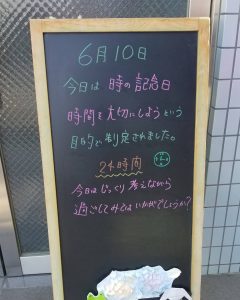 6月10日
今日は 時の記念日
時間を大切にしようという
目的で制定されました。
24時間
今日はじっくり考えながら
過ごしてみてはいかがでしょうか?